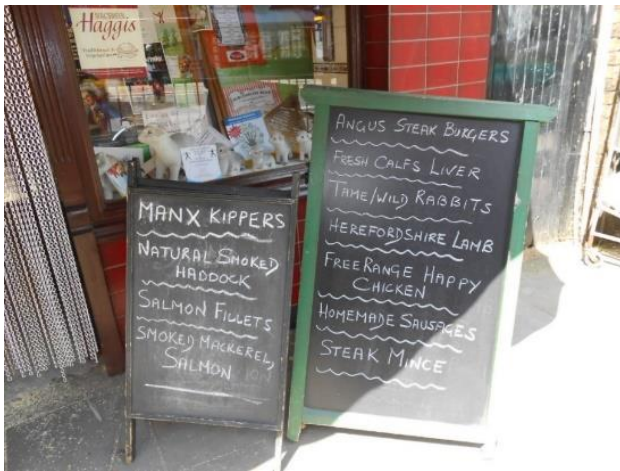 Haggis
MANX KIPPERS
NATURAL SMOKED
HADDOCK
SALMON FILLETS
SMOKED MACKEREL,
SALMON
ANGUS STEAK BURGERS
FRESH CALFS LIVER
TAME/WILD RABBITS
HEREFORDSHIRE LAMB
FREE RANGE HAPPY
CHICKEN
HOMEMADE SAUSAGES
STEAK MINCE